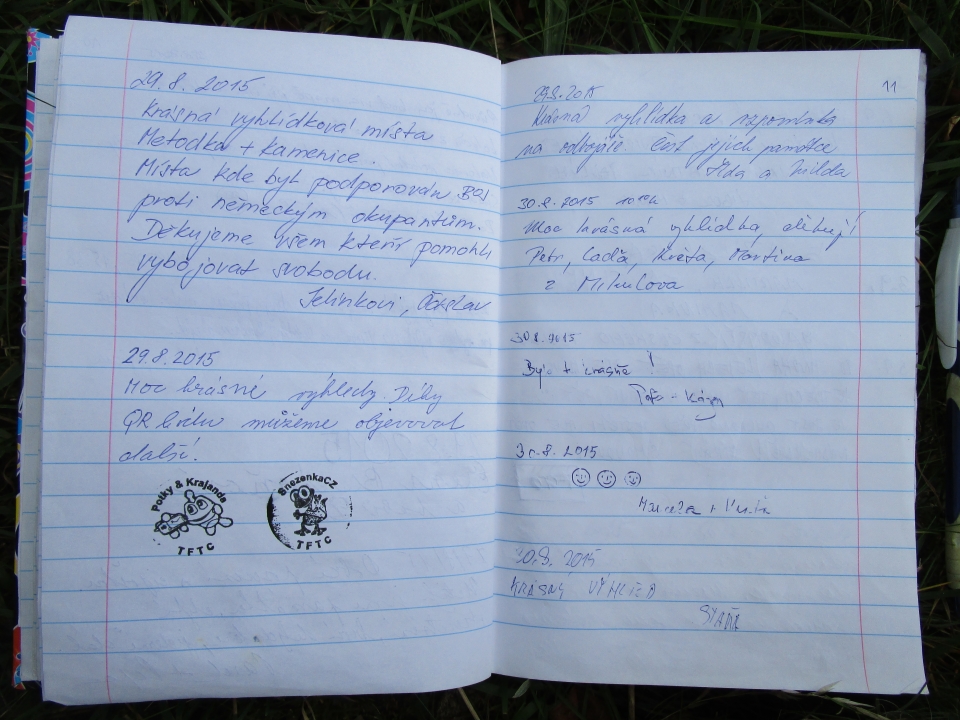 29.8.2015
Krásná vyhlídková místa
Metodka + Kamenice.
Místa kde byl podporován BSJ
proti německým okupantům.
Děkujeme všem kteří pomohli
vybojovat svobodu.
Jelínkovi, Čáslav
29.8.2015
Moc krásné výhledy. Díky
QR můžeme objevovat
další.
Potky & Krajanda
TFTC
SnezenkaCZ
TFTC
11
29.8.2015
Krásná vyhlídka a vzpomínka
na odboje čest jejich památce
a
30.8.2015
Moc krásná vyhlídka, děkuji!
Petr, Laďa, Květa, Martina
z Mikulova
30.8.2015
Bylo krásně!
30.8.2015
30.8.2015
KRÁSNÝ VÝHLED